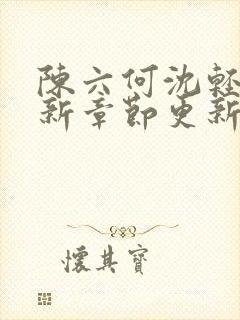 陳六何沈輕
新章節更新
懷其寶